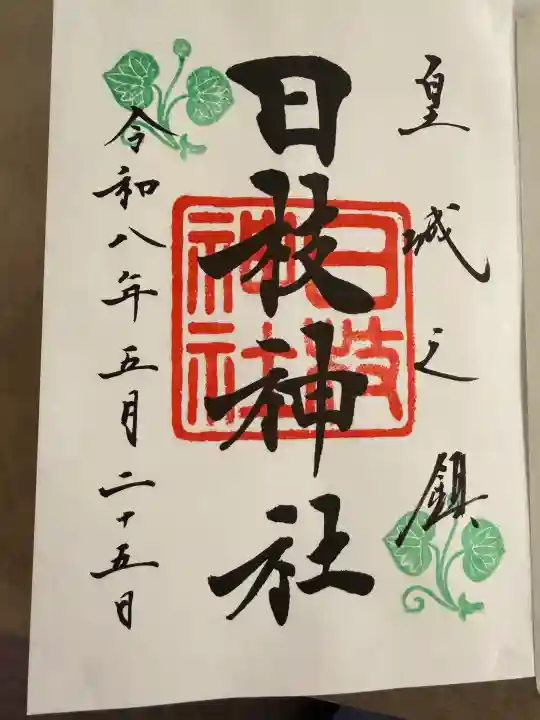 皇城之鎮
日枝神社
日枝神社
令和八年五月二十五日